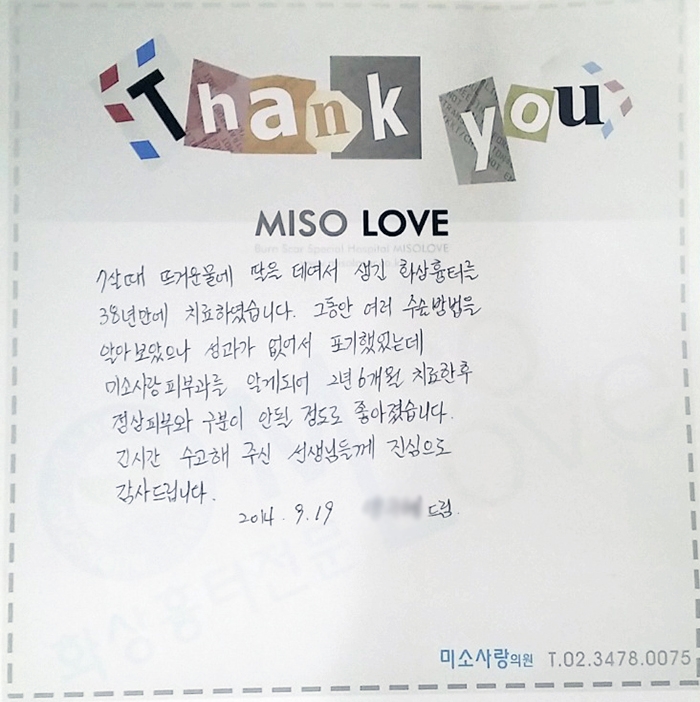 Thank you
MISO LOVE
Burn Scar Special Hospital MISOLOVE
7살때 뜨거운물에 팔을 데여서 생긴 화상흉터를
38년만에 치료하였습니다. 그동안 여러 수술방법을
알아보았으나 성과가 없어서 포기했었는데
미소사랑피부과를 알게되어 2년6개월 치료한후
정상피부와 구분이 안될 정도로 좋아졌습니다.
긴시간 수고해 주신 선생님들께 진심으로
감사드립니다.
2014. 9. 19 드림.
화상흉터전문
미소사랑의원 T.02.3478.0075